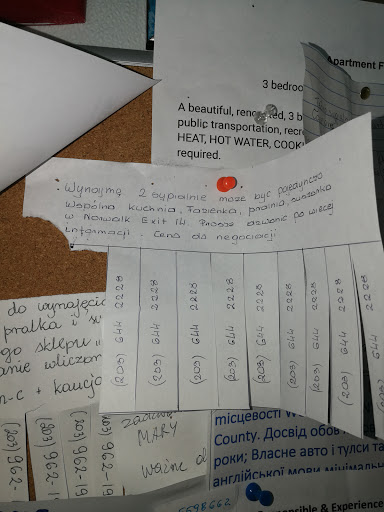 Apartment F
3 bedroo
A beautiful, ren ed, 3 b
public transportation, recr
HEAT, HOT WATER, COOK
required.
Wynajmę 2 sypialnie może być pojedynczo
Wspólna kuchnia, łazienka, pralnia, suszarka
w Norwalk Exit 14. Proszę dzwonić po więcej
informacji. Cena do negocjacji
(203) 644 2228
(203) 644 2228
(203) 644 2228
(203) 644 2228
(203) 644 2228
(203) 644 2228
(203) 644 2228
(203) 644 2228
do wynajęcia
pralka i su
go sklepu
anie wliczon
n-c + kaucja
(203) 962-
(203) 962-1
(203) 962-19
203) 962-19
MARY
ważne
місцевості W
County. Досвід обов
роки; Власне авто і тулси та
англійської мови мінімаль
sible & Experience